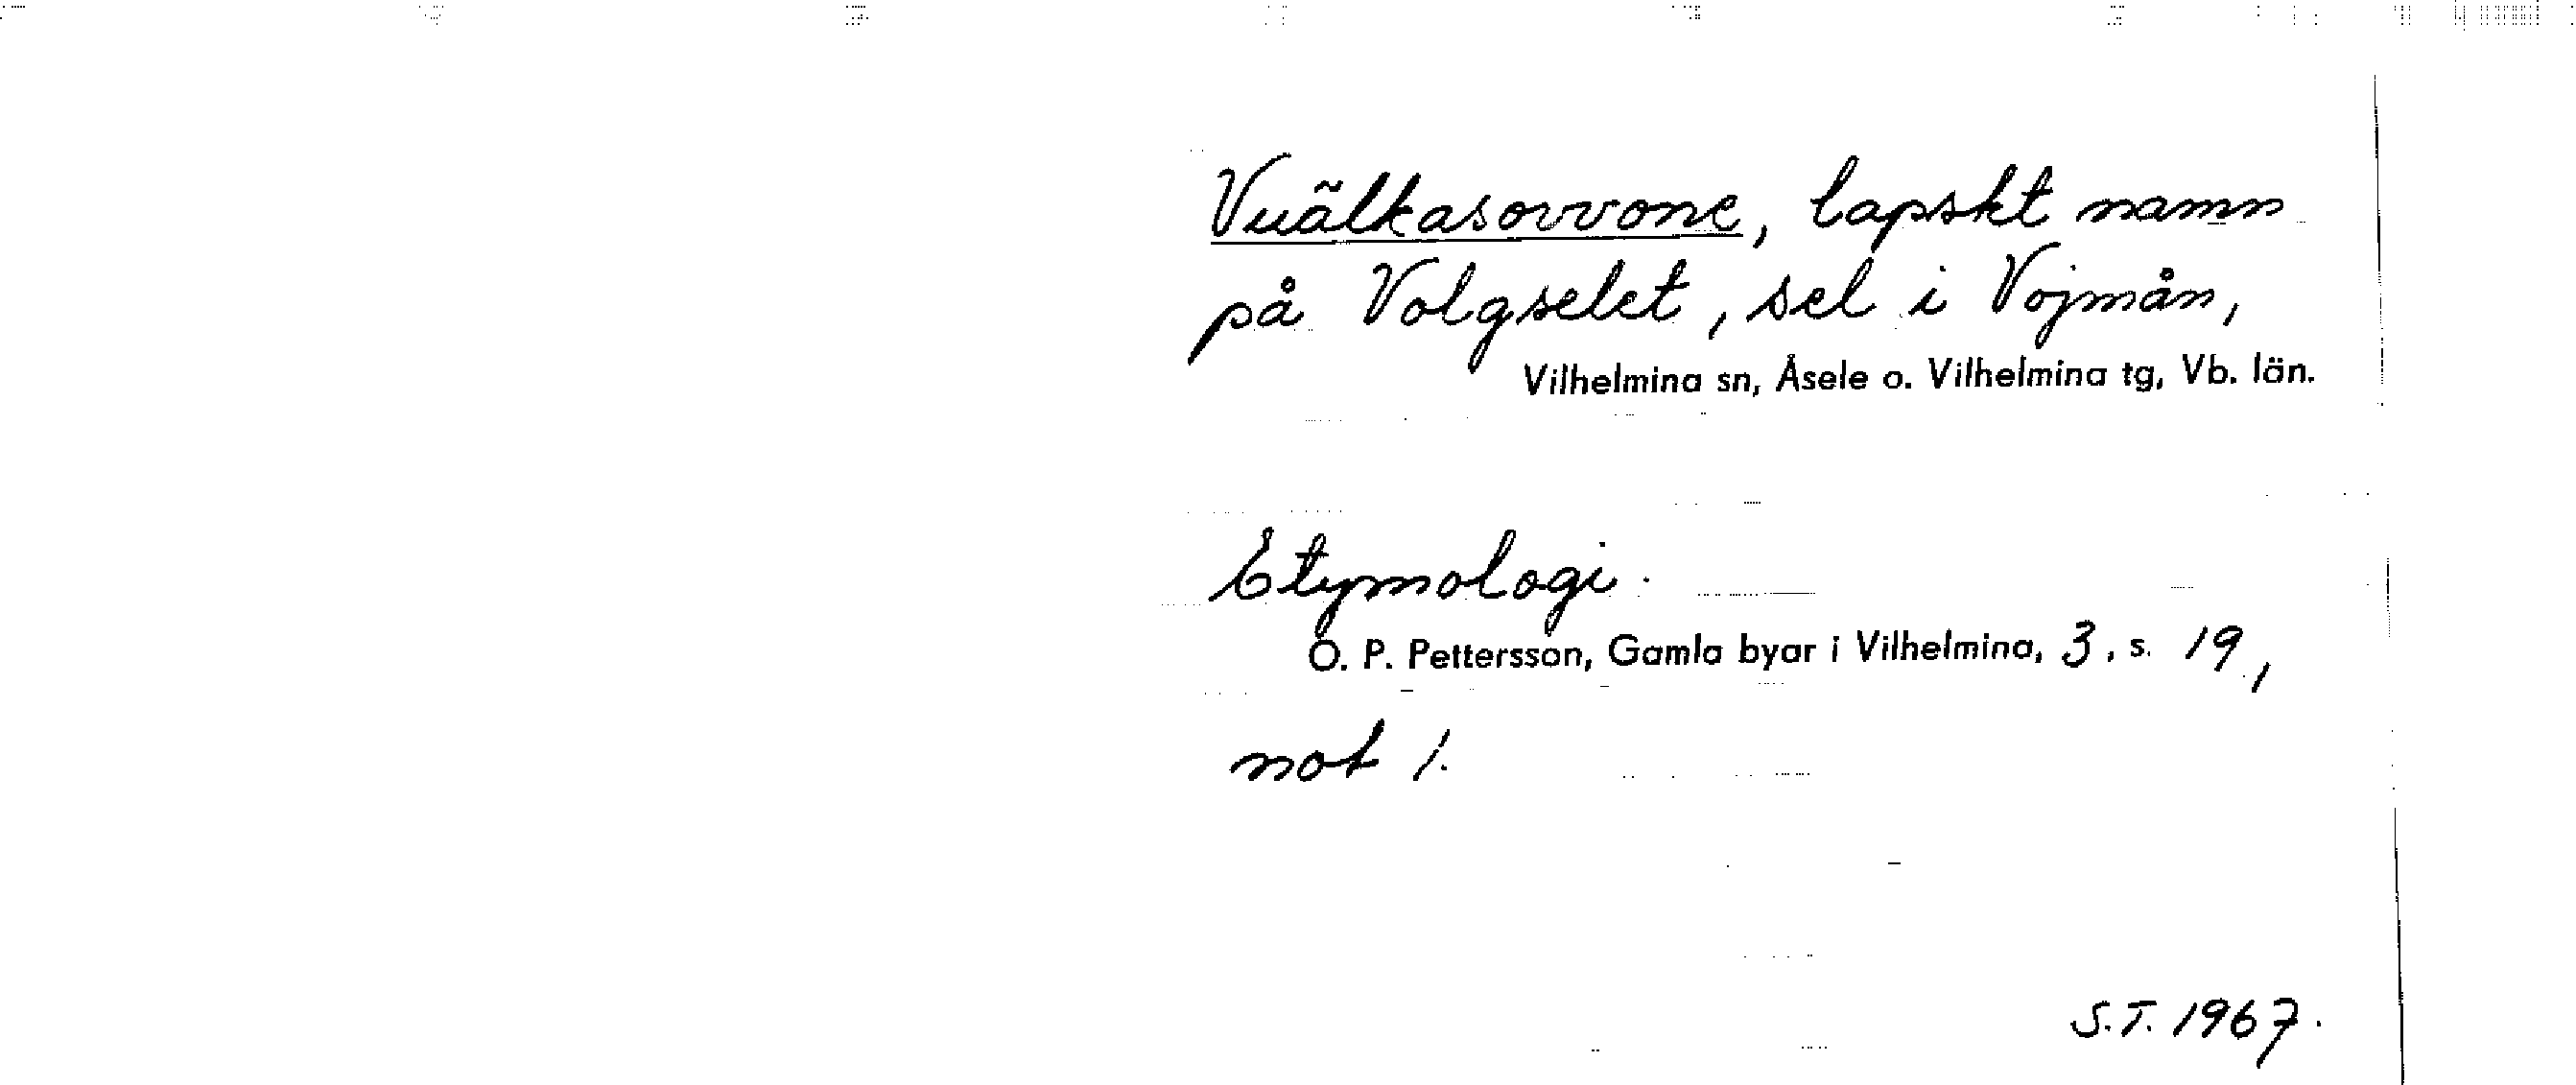 Vuãlkasovvone, lapskt namn
på Volgselet, sel i Vojmån,
Vilhelmina sn, Åsele o. Vilhelmina tg, Vb. län.
Etymologi.
O. P. Pettersson, Gamla byar i Vilhelmina, 3, s. 19,
not 1.
S.T. 1967.